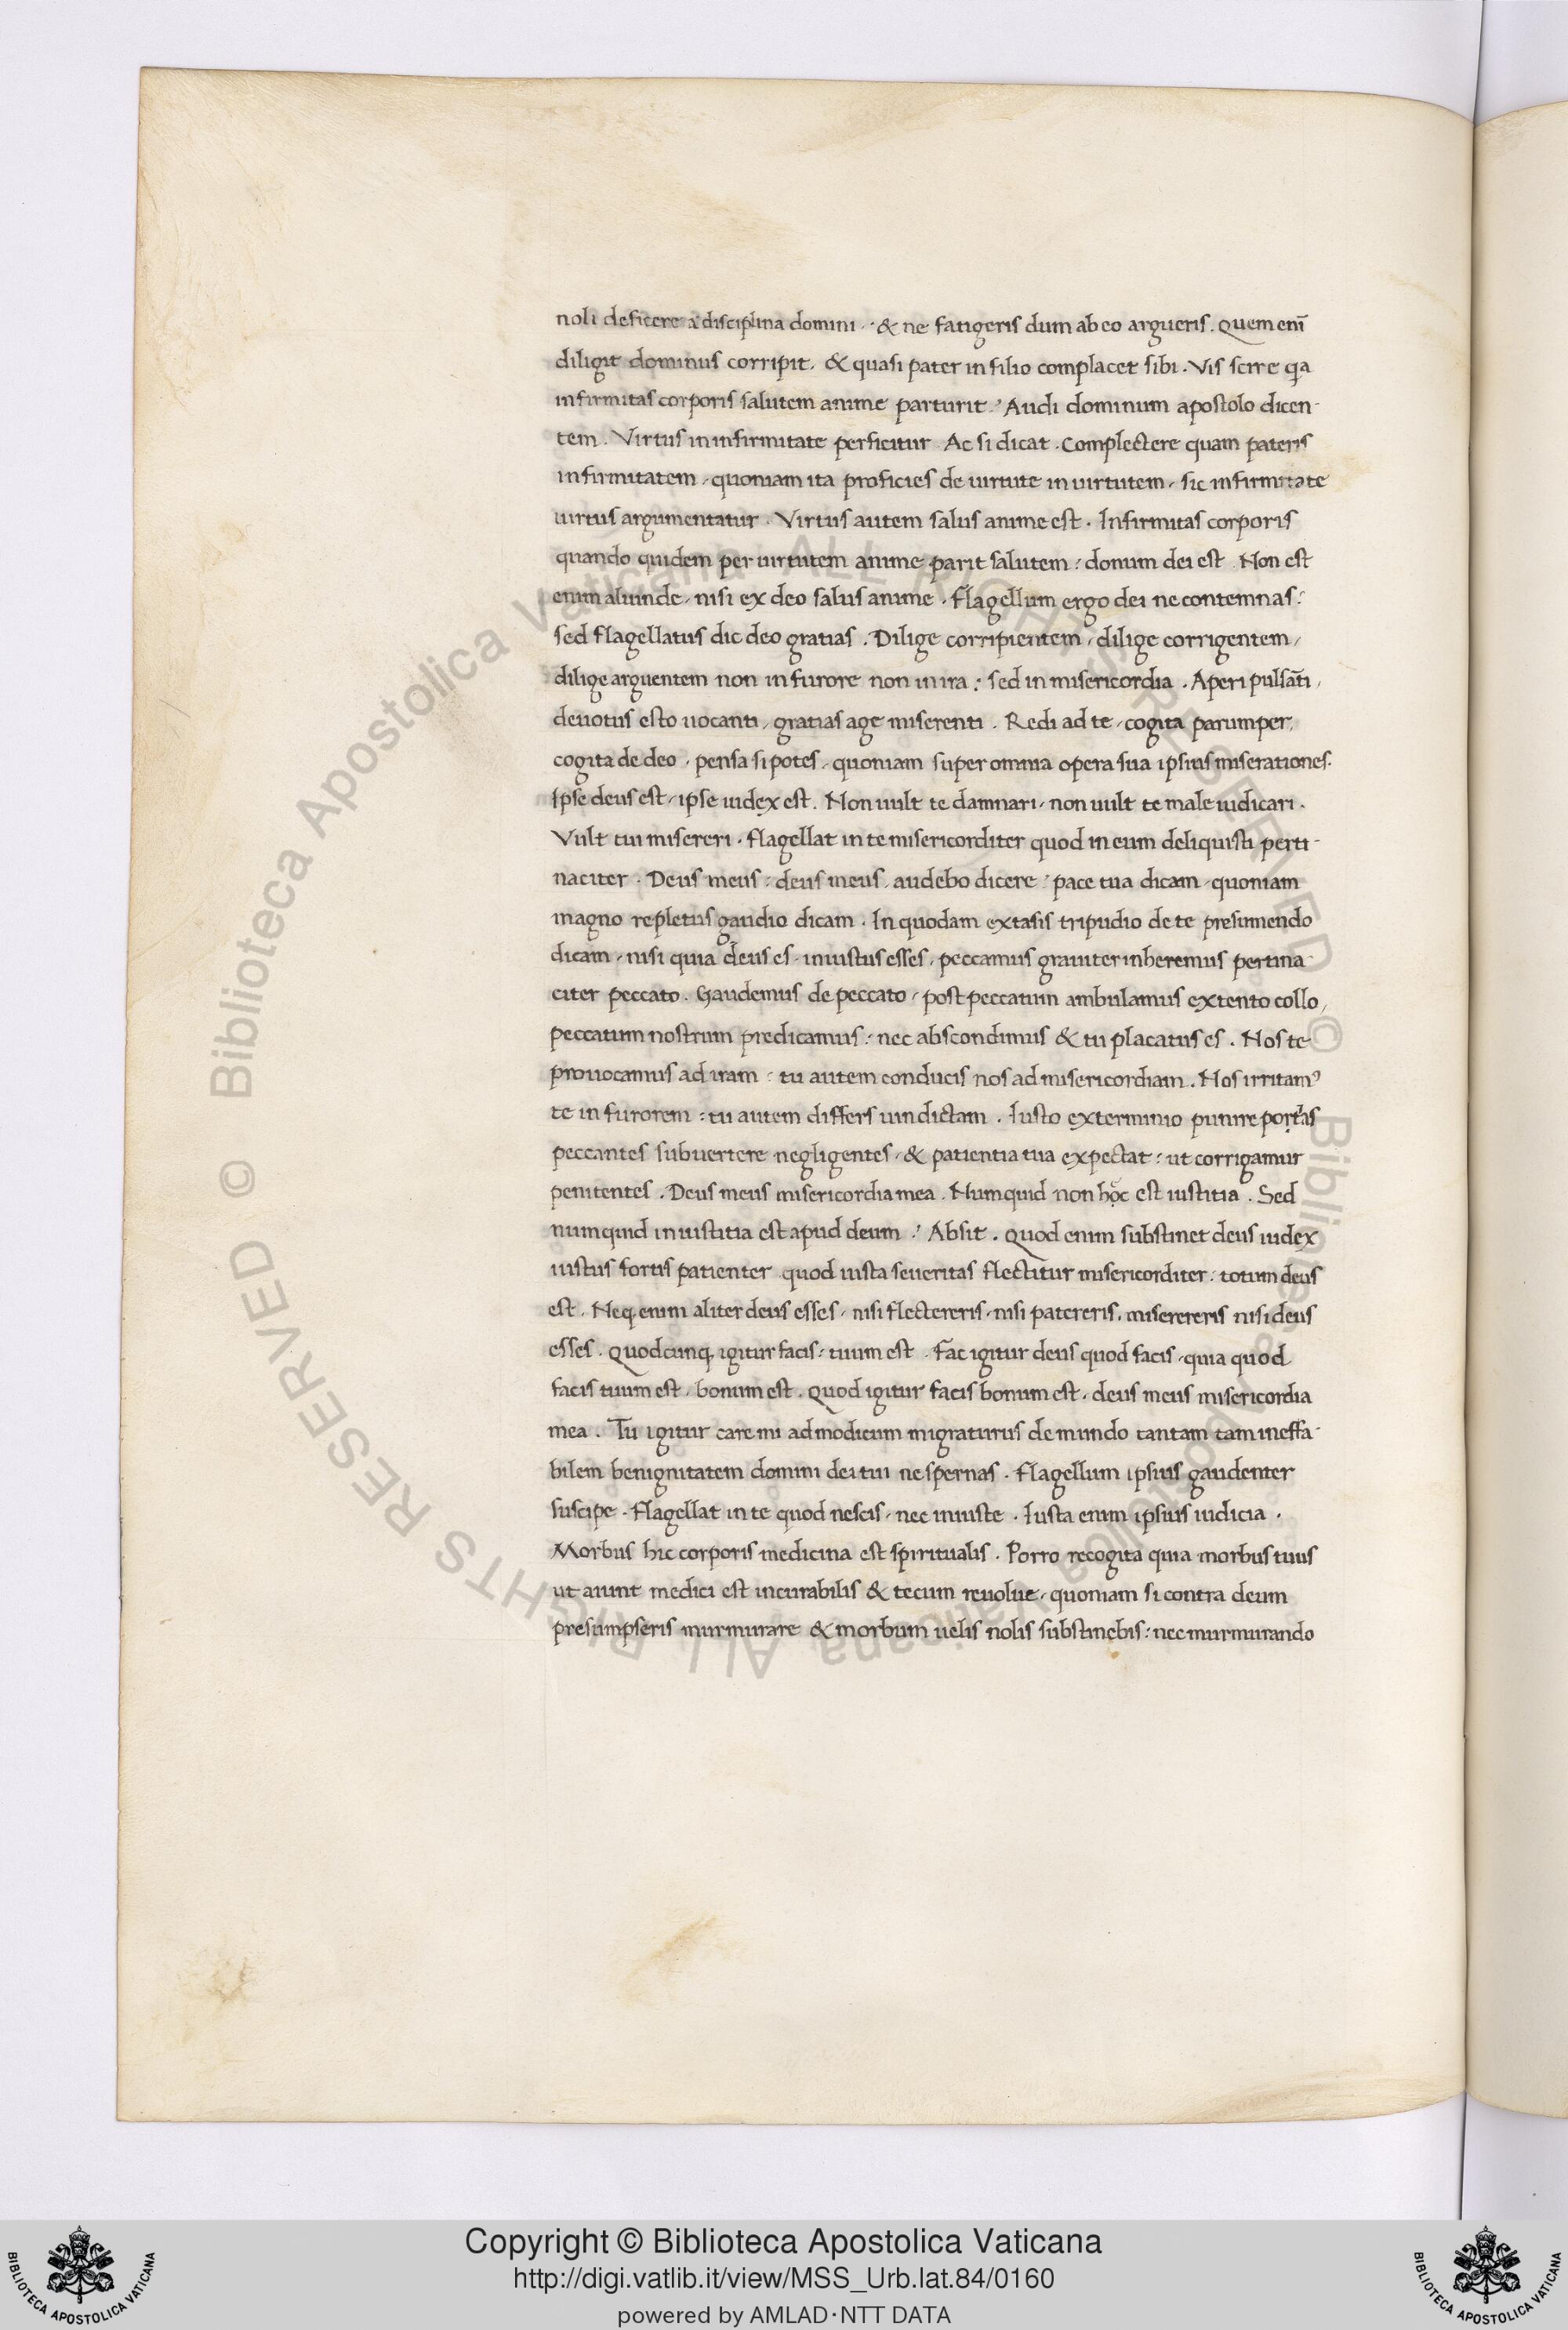 noli deficere a disciplina domini · & ne fatigeris dum ab eo argueris. Quem enī
diligit dominus corripit. & quasi pater in filio complacet sibi. Vis scire qa
infirmitas corporis salutem anime parturit? Audi dominum apostolo dicen-
tem. Virtus in infirmitate perficitur Ac si dicat. Complectere quam pateris
infirmitatem, quoniam ita proficies de uirtute in uirtutem, sic infirmitate
uirtus argumentatur. Virtus autem salus anime est. Infirmitas corporis
quando quidem per uirtutem anime parit salutem: donum dei est. Non est
enim aliunde, nisi ex deo salus anime. Flagellum ergo dei ne contemnas:
sed flagellatus dic deo gratias. Dilige corripientem, dilige corrigentem,
dilige arguentem non in furore non in ira: sed in misericordia. Aperi pulsāti,
deuotus esto uocanti, gratias age miserenti. Redi ad te, cogita parumper,
cogita de deo, pensa si potes, quoniam super omnia opera sua ipsius miserationes.
Ipse deus est, ipse iudex est. Non uult te damnari, non uult te male iudicari.
Vult tui misereri. Flagellat in te misericorditer quod in eum deliquisti perti-
naciter. Deus meus: deus meus, audebo dicere: pace tua dicam, quoniam
magno repletus gaudio dicam. In quodam extasis tripudio de te presumendo
dicam, nisi quia deus es, iniustus esses, peccamus grauiter inheremus pertina
citer peccato. Gaudemus de peccato, post peccatum ambulamus extento collo,
peccatum nostrum predicamus: nec abscondimus & tu placatus es. Nos te
prouocamus ad iram: tu autem conducis nos ad misericordiam. Nos irritam⁹
te in furorem: tu autem differs uindictam. Iusto exterminio punire
peccantes subuertere negligentes, & patientia tua expectat: ut corrigamur
penitentes. Deus meus misericordia mea. Numquid non est iustitia. Sed
numquid iniustitia est apud deum? Absit. Quod enim substinet deus iudex
iustus fortis patienter quod iusta seueritas flectitur misericorditer: totum deus
est. Neq; enim aliter deus esses, nisi flectereris, nisi patereris, miserereris nisi deus
esses. Quodcunq; igitur facis: tuum est. Fac igitur deus quod facis, quia quod
facis tuum est, bonum est. Quod igitur facis bonum est, deus meus misericordia
mea. Tu igitur care mi ad modicum migraturus de mundo tantam tam ineffa-
bilem benignitatem domini dei tui ne spernas. Flagellum ipsius gaudenter
suscipe. Flagellat in te quod nescis, nec iniuste. Iusta enim ipsius iudicia.
Morbus hic corporis medicina est spiritualis. Porro recogita quia morbus tuus
ut aiunt medici est incurabilis & tecum reuolue, quoniam si contra deum
presumpseris murmurare & morbum uelis nolis substinebis: nec murmurando
© Biblioteca Apostolica Vaticana ALL RIGHTS RESERVED © Biblioteca Apostolica Vaticana ALL RIGHTS RESERVED
Copyright © Biblioteca Apostolica Vaticana
http://digi.vatlib.it/view/MSS_Urb.lat.84/0160
powered by AMLAD·NTT DATA
BIBLIOTECA APOSTOLICA VATICANA
BIBLIOTECA APOSTOLICA VATICANA